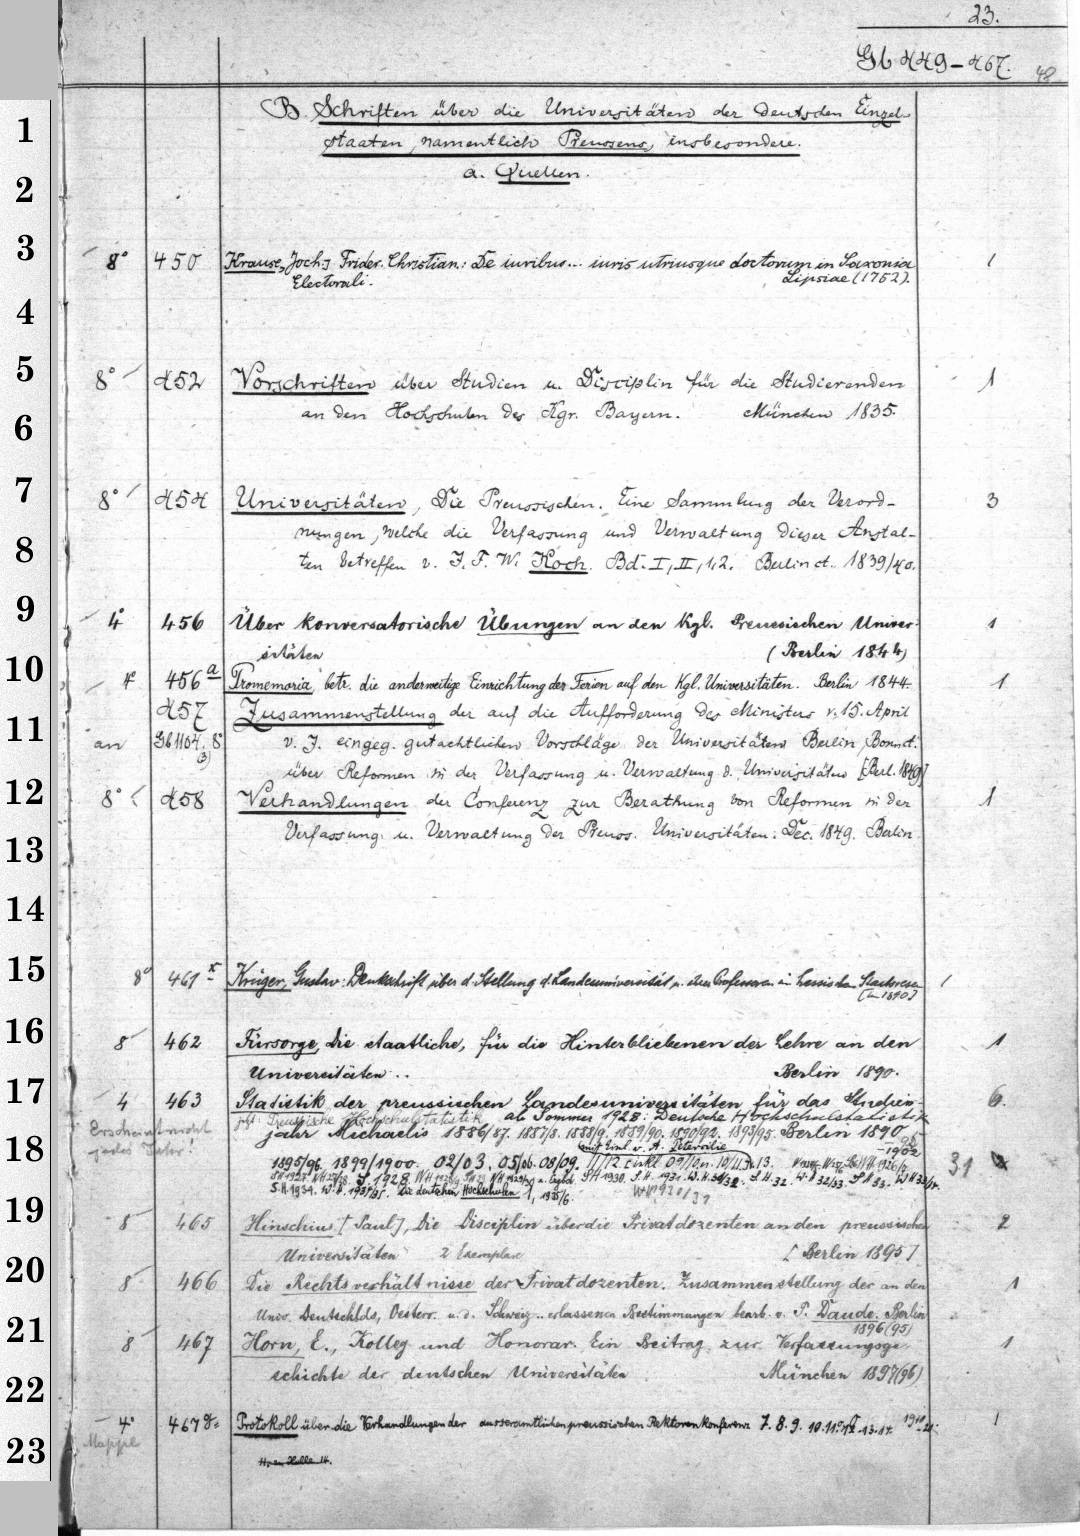 23.
Gb 449-467.
48
B. Schriften über die Universitäten der deutschen Einzel-
staaten, namentlich Preussens, insbesondere.
a. Quellen.
1
2
3
8° 450 Krause, Joch. Frider. Christian.: De iuribus... iuris utriusque doctorum in Saxonia 1
Electorali. Lipsiae (1752).
4
5
8° 452 Vorschriften über Studien u. Disciplin für die Studierenden 1
an den Hochschulen des Kgr. Bayern. München 1835.
6
7
8° 454 Universitäten, Die Preussischen. Eine Sammlung der Verord- 3
nungen, welche die Verfassung und Verwaltung dieser Anstal-
8
ten betreffen v. J. F. W. Koch. Bd. I, II, 1,2. Berlin ct. 1839/40.
9
4° 456 Über konversatorische Übungen an den Kgl. Preussischen Univer- 1
sitäten (Berlin 1844)
10
4° 456a Promemoria, betr. die anderweitige Einrichtung der Ferien auf den Kgl. Universitäten. Berlin 1844. 1
457 Zusammenstellung der auf die Aufforderung des Ministers v. 15. April
11
an Gb 1164, 8° v. J. eingeg. gutachtlichen Vorschläge der Universitäten Berlin, Bonn ct.
(3)
über Reformen in der Verfassung u. Verwaltung d. Universitäten [Berl. 1849]
12
8° 458 Verhandlungen der Conferenz zur Berathung von Reformen in der 1
Verfassung u. Verwaltung der Preuss. Universitäten: Dec. 1849. Berlin
13
14
15
8° 461x Krüger, Gustav: Denkschrift über d. Stellung d. Landesuniversität u. ihrer Professoren im hessischen Staatswesen 1
[um 1890]
16
8 462 Fürsorge, Die staatliche, für die Hinterbliebenen der Lehre an den 1
Universitäten .. Berlin 1890.
17
4 463 Statistik der preussischen Landesuniversitäten für das Studien- 6.
jetzt: Preussische Hochschulstatistik ab Sommer 1928: Deutsche Hochschulstatistik
Erscheint nicht jahr Michaelis 1886/87. 1887/8. 1888/9. 1889/90. 1890/92. 1893/95. Berlin 1890-
jedes Jahr! -1902
18
mit Einl. v. A. Petersilie
1895/96. 1899/1900. 02/03. 05/06. 08/09. 11/12 13. 31
S. 1928. SH 1930. S.H. 1931. S.H. 32. W.H. 32/33. S.H. 33.
S.H. 1934. W.H. 1934/35. Die deutschen Hochschulen 1, 1935/6.
19
8 465 Hinschius [Paul], Die Disciplin über die Privatdozenten an den preussischen 2
Universitäten 2 Exemplare [Berlin 1895]
20
8 466 Die Rechtsverhältnisse der Privatdozenten. Zusammenstellung der an den 1
Univ. Deutschlds, Oesterr. u. d. Schweiz .. erlassenen Bestimmungen bearb. v. P. Daude. Berlin
1896 (95)
21
8 467 Horn, E., Kolleg und Honorar. Ein Beitrag zur Verfassungsge- 1
schichte der deutschen Universitäten München 1897 (96)
22
4° 467 Protokoll über die Verhandlungen der ausseramtlichen preussischen Rektorenkonferenz 7. 8. 9. 10. 11. 12. 13. 14. 1
Mappe
23